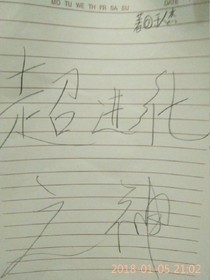 MO TU WE TH FR SA SU
DATE
超进化
之神
2018-01-05 21:02